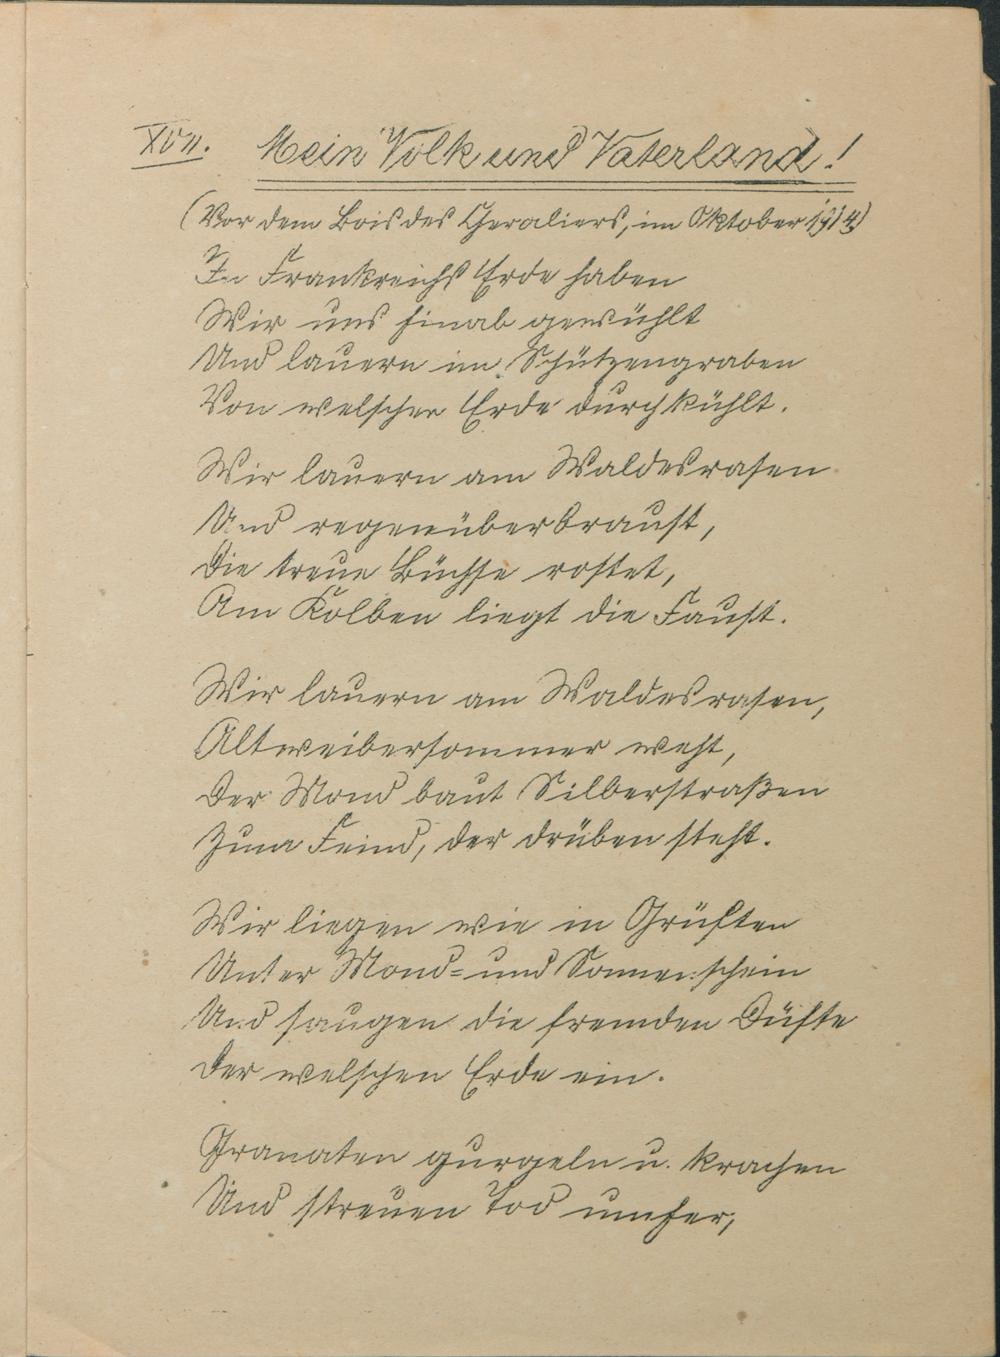 XVII. Mein Volk und Vaterland!
(Vor dem Bois des Chevaliers, im Oktober 1914)
In Frankreichs Erde haben
Wir uns hinab gewühlt
Und lauern im Schützengraben
Von welscher Erde durchkühlt.
Wir lauern am Waldesrasen
Und regenüberbraust,
Die treue Büchse rostet,
Am Kolben liegt die Faust.
Wir lauern am Waldesrasen,
Altweibersommer weht,
Der Mond baut Silberstraßen
Zum Feind, der drüben steht.
Wir liegen wie in Grüften
Unter Mond- und Sonnenschein
Und saugen die fremden Düfte
Der welschen Erde ein.
Granaten gurgeln u. krachen
Und streuen Tod umher,